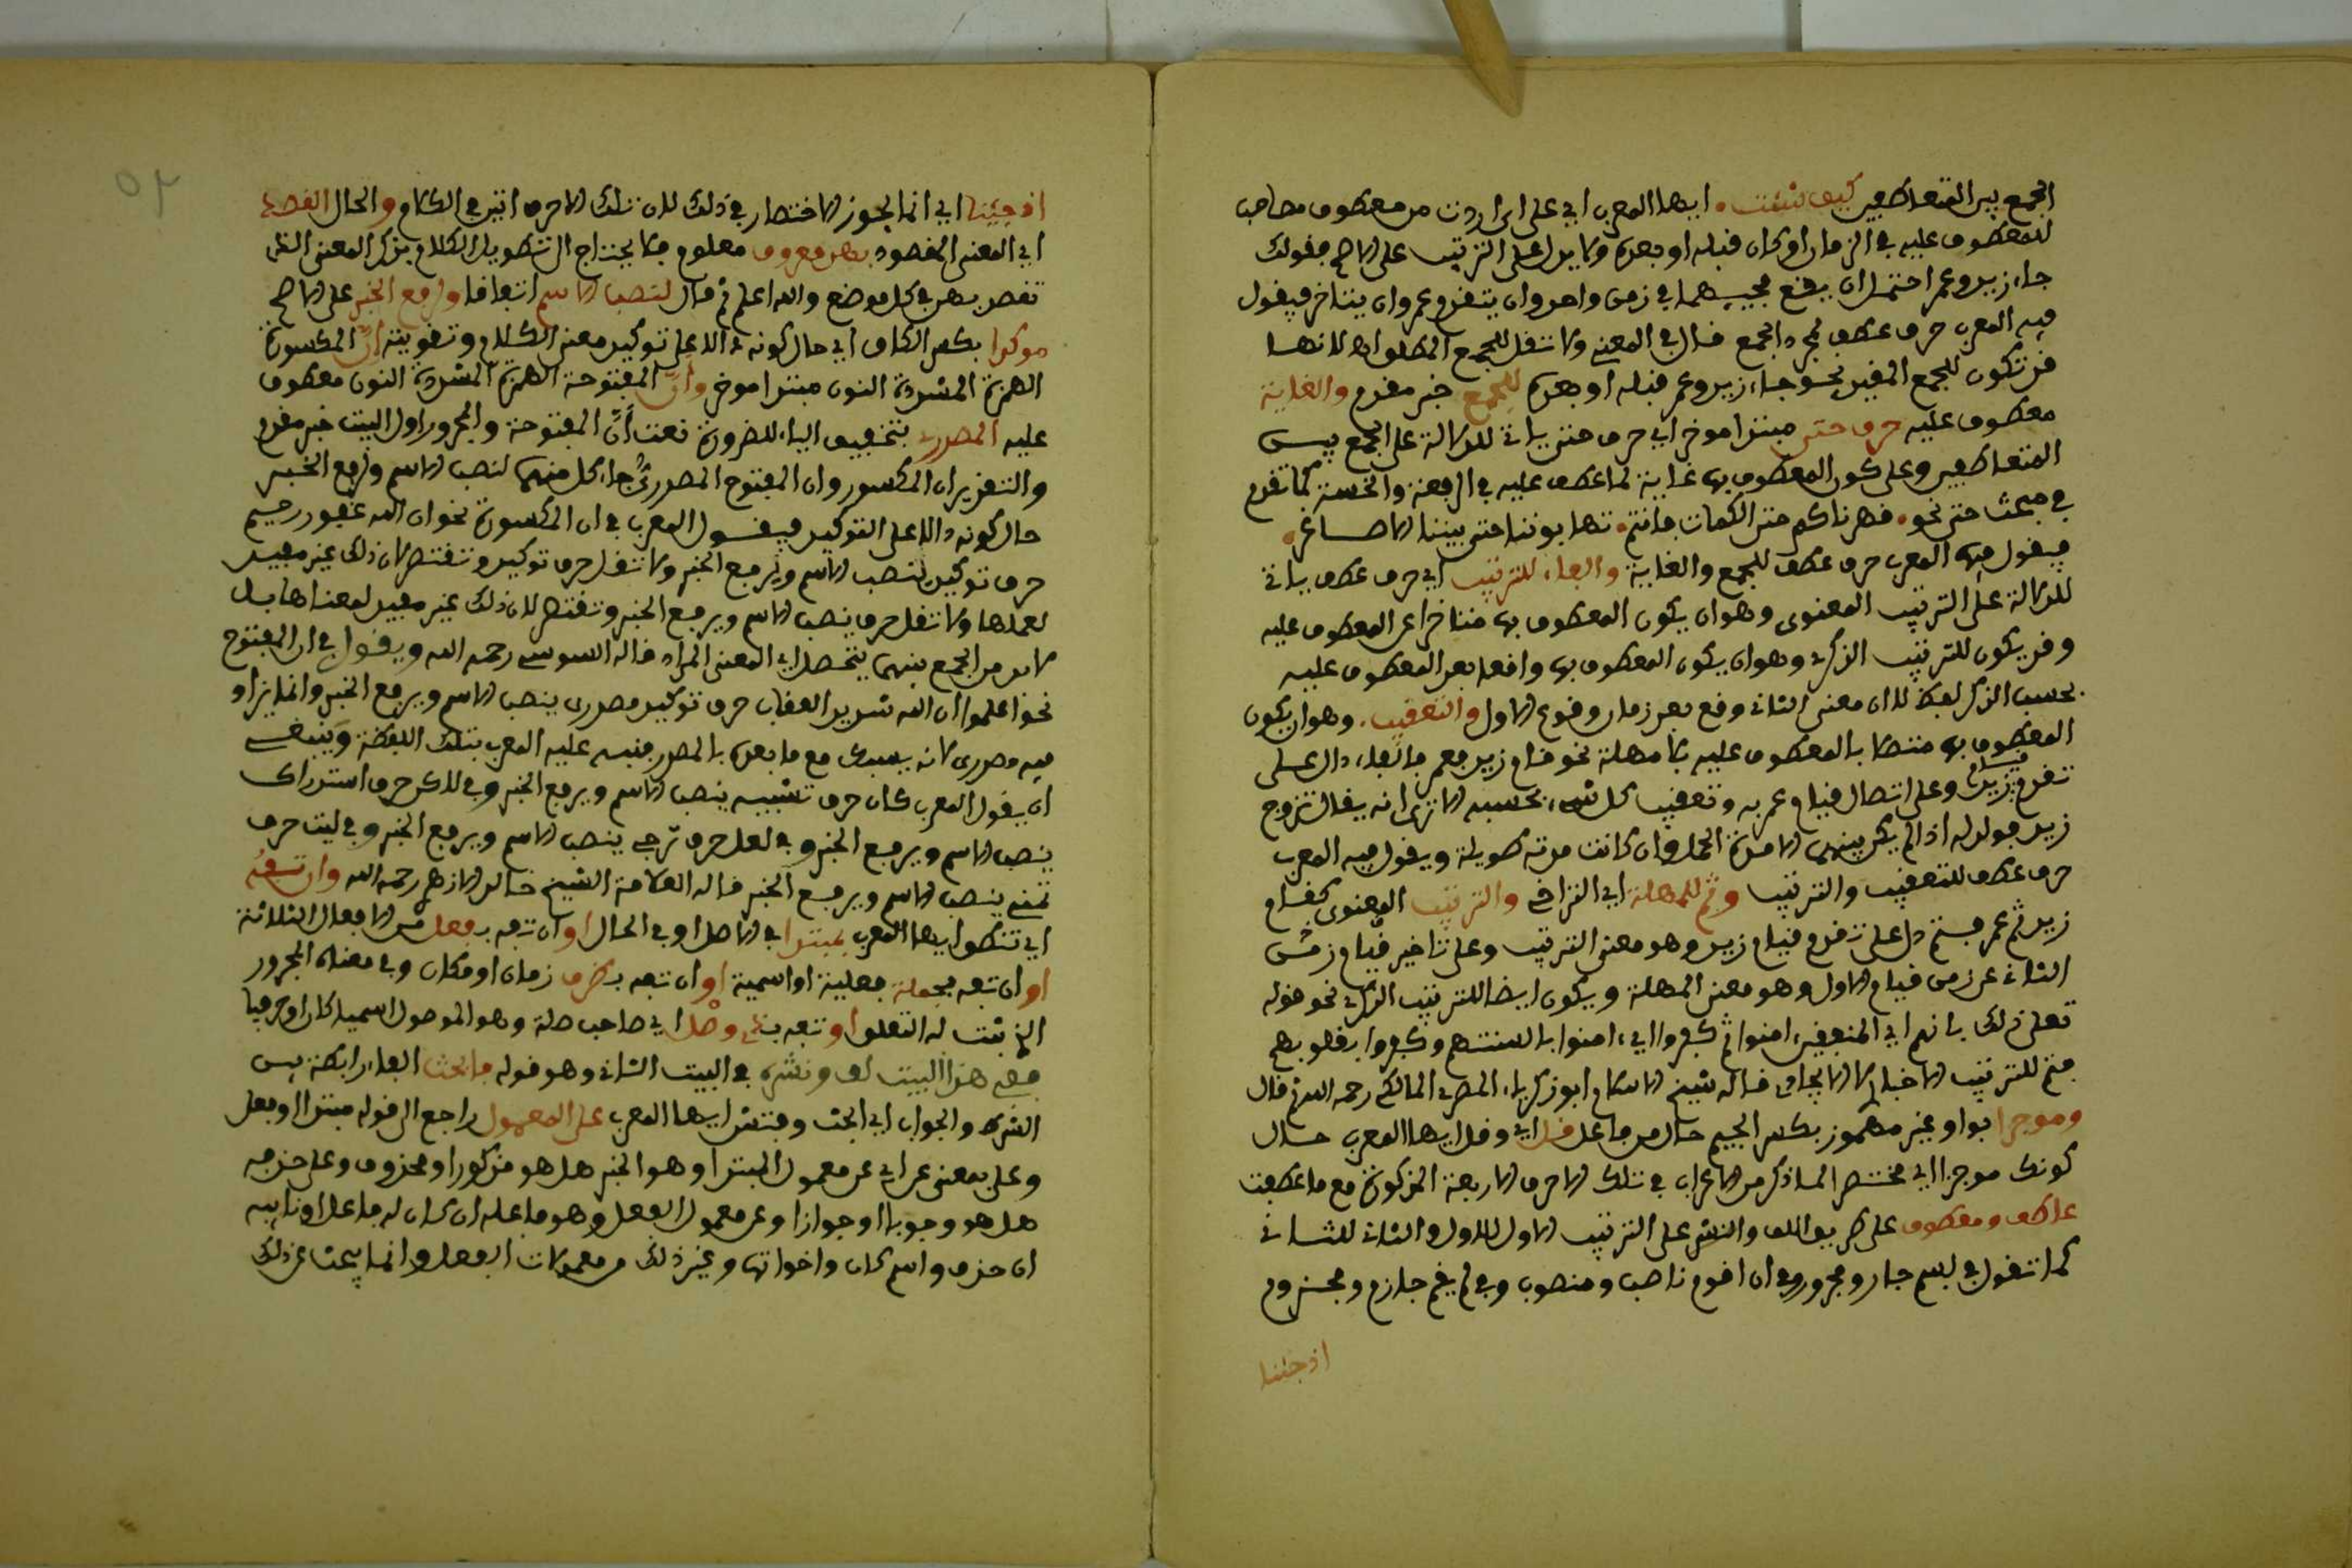 الجمع بين المتعاطفين كيف شئت ايها المعرب اي على اي اردت من معطوف مصاحب
للمعطوف عليه في الزمان او كان قبله او بعده ولا يدل على الترتيب على الاصح فقولك
جاء زيد وعمر احتمل ان يقع مجيئهما في زمن واحد وان يتقدم عمرو وان يتاخر فيقول
فيه المعرب حرف عطف لمجرد الجمع قال في المغني ولا تقل للجمع المطلق لانها
قد تكون للجمع المقيد نحو جاء زيد وعمر قبله او بعده للجمع خبر مقدم والغاية
معطوف عليه حرف حتى مبتدا موخر اي حرف حتى ياتي للدلالة على الجمع بين
المتعاطفين وعلى كون المعطوف بها غاية لما عطف عليه في الرفعة والخسة كما تقدم
في مبحث حتى نحو قهرناكم حتى الكمات فانتم تهابوننا حتى بنينا الاصاغر
فيقول فيها المعرب حرف عطف للجمع والغاية والفاء للترتيب اي حرف عطف ياتي
للدلالة على الترتيب المعنوى وهو ان يكون المعطوف بها متاخرا عن المعطوف عليه
وقد يكون للترتيب الذكري وهو ان يكون المعطوف بها واقعا بعد المعطوف عليه
بحسب الذكر لفظا لا ان معنى الثاني وقع بعد زمان وقوع الاول والتعقيب وهو ان يكون
المعطوف بها متصلا بالمعطوف عليه بلا مهلة نحو قام زيد فعمر فالفاء دال على
تقدم قيام زيد وعلى اتصال قيام عمر به وتعقيب كل شيء بحسبه الا ترى انه يقال تزوج
زيد فولد له اذا لم يكن بينهما الا مدة الحمل وان كانت مدته طويلة ويقول فيه المعرب
حرف عطف للتعقيب والترتيب وثم للمهلة اي التراخي والترتيب المعنوى كقام
زيد ثم عمر فثم دل على تقدم قيام زيد وهو معنى الترتيب وعلى تاخير قيام زمن
الثاني عن زمن قيام الاول وهو معنى المهلة ويكون ايضا للترتيب الذكري نحو قوله
تعلى ذلك بانهم اي المنفقين امنوا ثم كفروا اي امنوا بالسنتهم وكفروا بقلوبهم
فثم للترتيب الاخبار لا الايجادي قاله شيخ الاسلام ابو زكرياء المصري المالكي رحمه الله ثم قال
وموجزا بواو غير مهموز بكسر الجيم حال من فاعل قل اي وقل ايها المعرب حال
كونك موجزا اي مختصرا لما ذكر من الاعراب في تلك الاحرف الاربعة المذكورة مع ما عطفت
عاطف ومعطوف على طريق اللف والنشر على الترتيب الاول للاول والثاني للثاني
كما تقول في بسم جار ومجرور وفي لن اقوم ناصب ومنصوب وفي لم يقم جازم ومجزوم
اذ جئنا
اذ جئنا اي انما يجوز الاختصار في ذلك لان تلك الاحرف اتين في الكلام والحال القصد
اي المعنى المقصود بهن معروف معلوم فلا يحتاج الى تطويل الكلام بذكر المعنى الذي
تقصد بهن في كل موضع والله اعلم ثم قال لنصب الاسم اتفاقا ورفع الخبر على الاصح
موكدا بكسر الكاف اي حال كونه دالا على توكيد معنى الكلام وتقويته ان المكسورة
الهمزة المشددة النون مبتدا موخر وان المفتوحة الهمزة المشددة النون معطوف
عليه المصدري بتخفيف الياء للضرورة نعت ان المفتوحة والمجرور اول البيت خبر مقدم
والتقدير ان المكسور وان المفتوح المصدري جاء كل منهما لنصب الاسم ورفع الخبر
حال كونه دالا على التوكيد فيقول المعرب في ان المكسورة نحو ان الله غفور رحيم
حرف توكيد ينصب الاسم ويرفع الخبر ولا تقل حرف توكيد وتقتصر لان ذلك غير مفيد
لعملها ولا تقل حرف ينصب الاسم ويرفع الخبر وتقتصر لان ذلك غير مفيد لمعناها بل
لابد من الجمع بينهما يتحصل اي المعنى المراد قاله السوسي رحمه الله ويقول في ان المفتوح
نحو اعلموا ان الله شديد العقاب حرف توكيد مصدرى ينصب الاسم ويرفع الخبر وانما يزاد
فيه مصدرى لانه يسبك مع ما بعده بالمصدر فنبه عليه المعرب بتلك اللفظة وينبغي
ان يقول المعرب كان حرف تشبيه ينصب الاسم ويرفع الخبر وفي لاكن حرف استدراك
ينصب الاسم ويرفع الخبر وفي لعل حرف ترجي ينصب الاسم ويرفع الخبر وفي ليت حرف
تمني ينصب الاسم ويرفع الخبر قاله العلامة الشيخ خالد الازهري رحمه الله وان تفه
اي تنطق ايها المعرب بمبتدا في الاصل او في الحال او ان تفه بفعل من الافعال الثلاثة
او ان تفه بجملة فعلية او اسمية او ان تفه بظرف زمان او مكان وفي معناه المجرور
الذي ثبت له التعلق او تفه بذي وصل اي صاحب صلة وهو الموصول اسميا كان او حرفيا
ففي هذا البيت لف ونشره في البيت الثاني وهو قوله فابحث الفاء رابطة بين
الشرط والجواب اي ابحث وفتش ايها المعرب على المعمول راجع الى قوله مبتدا او فعل
وعلى بمعنى عن اي عن معمول المبتدا وهو الخبر هل هو مذكور او محذوف وعلى حذفه
هل هو وجوبا او جوازا وعن معمول الفعل وهو فاعله ان كان له فاعل او نائبه
ان حذف واسم كان واخواتها وغير ذلك من معمولات الفعل وانما يبحث عن ذلك